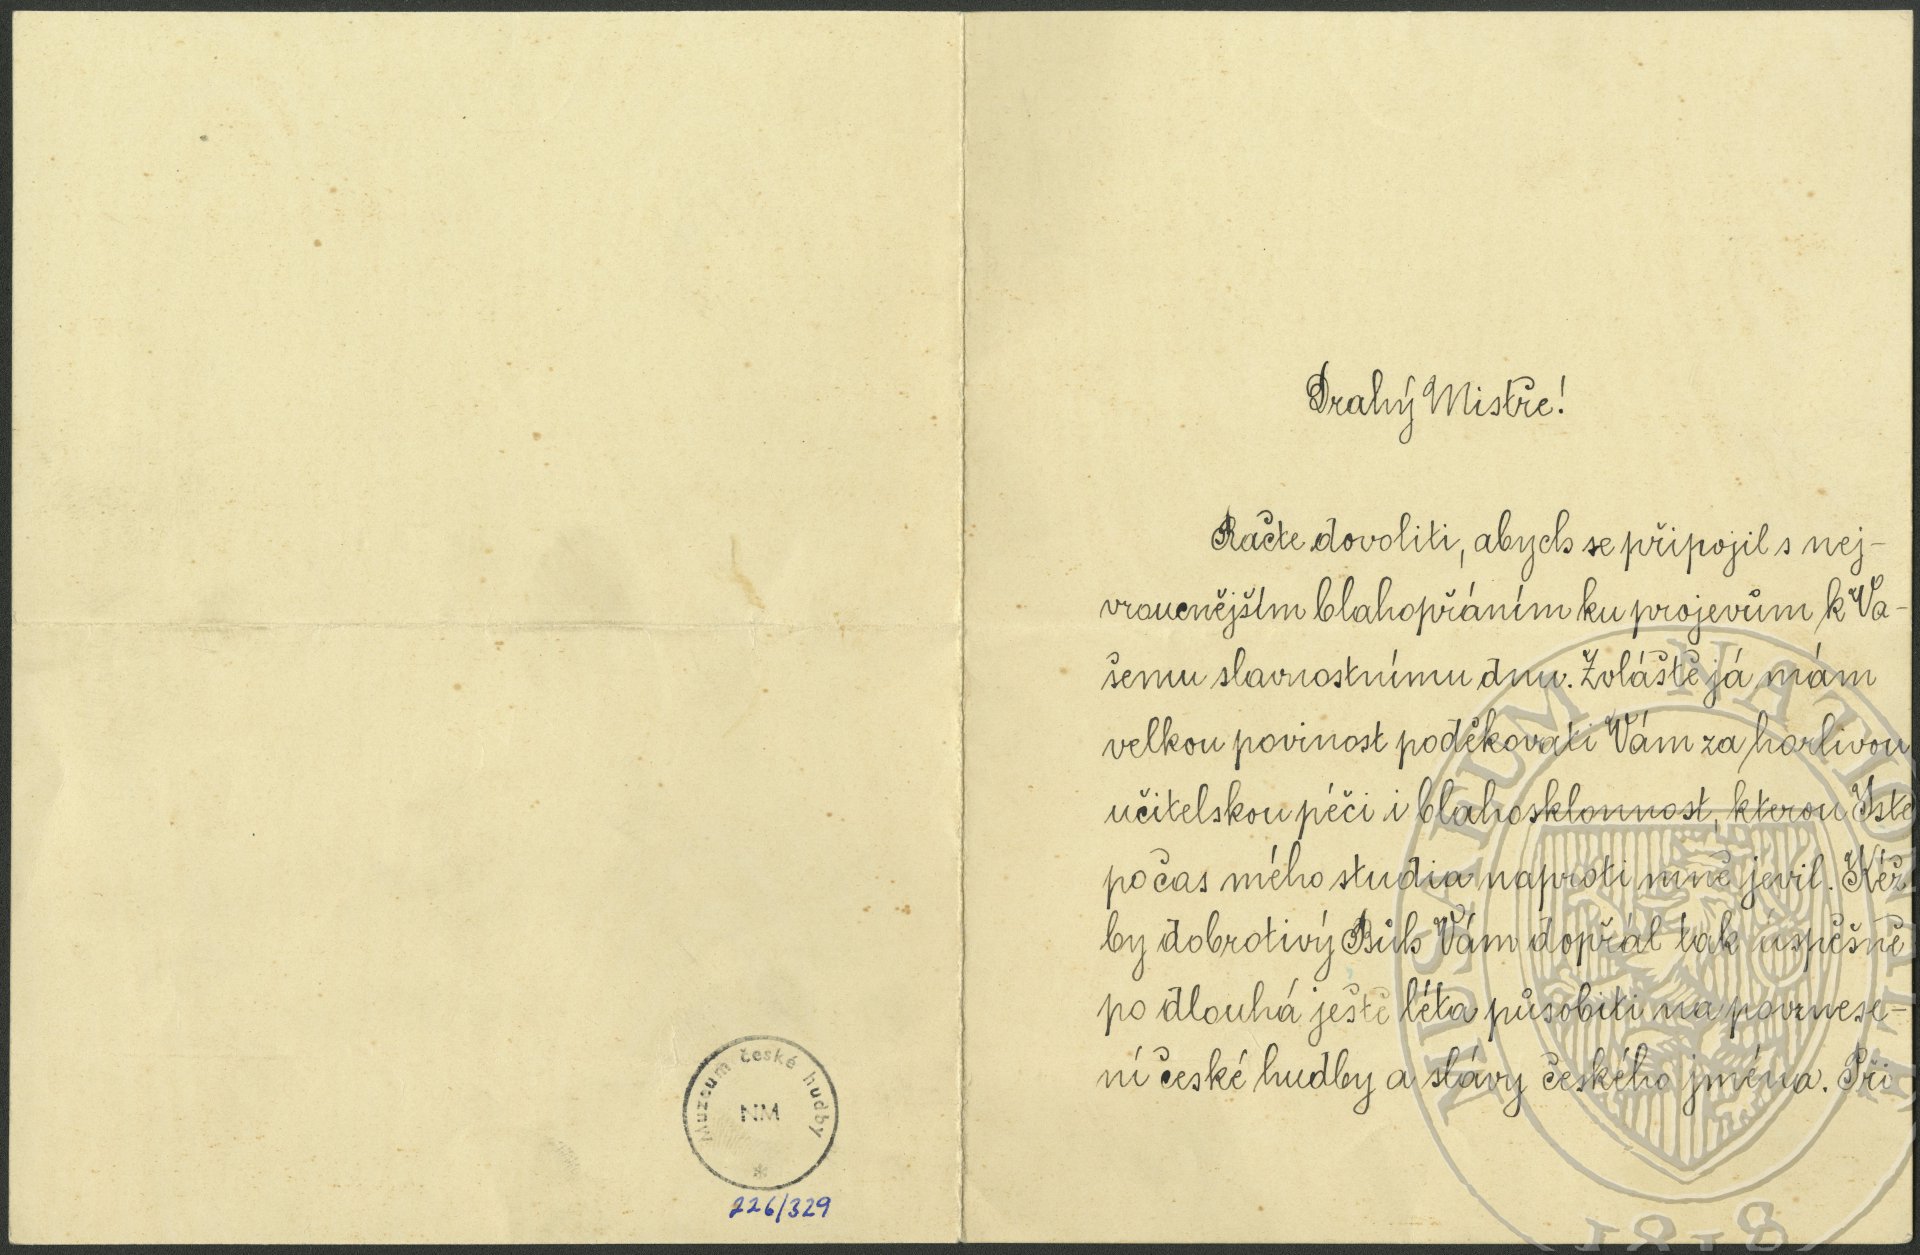 Muzeum české hudby
NM
226/329
Drahý Mistře!
Račte dovoliti, abych se připojil s nej-
vroucnějším blahopřáním ku projevům k Va-
šemu slavnostnímu dnu. Zvláště já mám
velkou povinost poděkovati Vám za horlivou
učitelskou péči i blahosklonnost, kterou Jste
počas mého studia naproti mně jevil. Kéž
by dobrotivý Bůh Vám dopřál tak úspěšně
po dlouhá ještě léta působiti na povznese-
ní české hudby a slávy českého jména. Při
MUSAEUM NATIONALE
1818